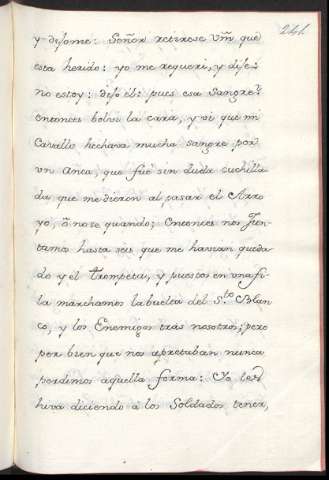 241.
y dijome: Señor retirese Vm que
esta herido: yo me requeri, y dije:
no estoy: dijo èl: pues esa Sangre?
entonces bolvi la cara, y vi que mi
Cavallo hechava mucha sangre por
un Anca, que fuè sin duda cuchilla
da que me dieron al pasar el Arro
yo, ò no se quando; Entonces nos Jun
tamos hasta seis que me havian queda
do y el trompeta, y puestos en una fi
la marchamos la buelta del S.to Blan
co, y los Enemigos tras nosotros; pero
por bien que nos apretaban nunca
perdimos aquella forma: Yo les
hiva diciendo à los Soldados tener,